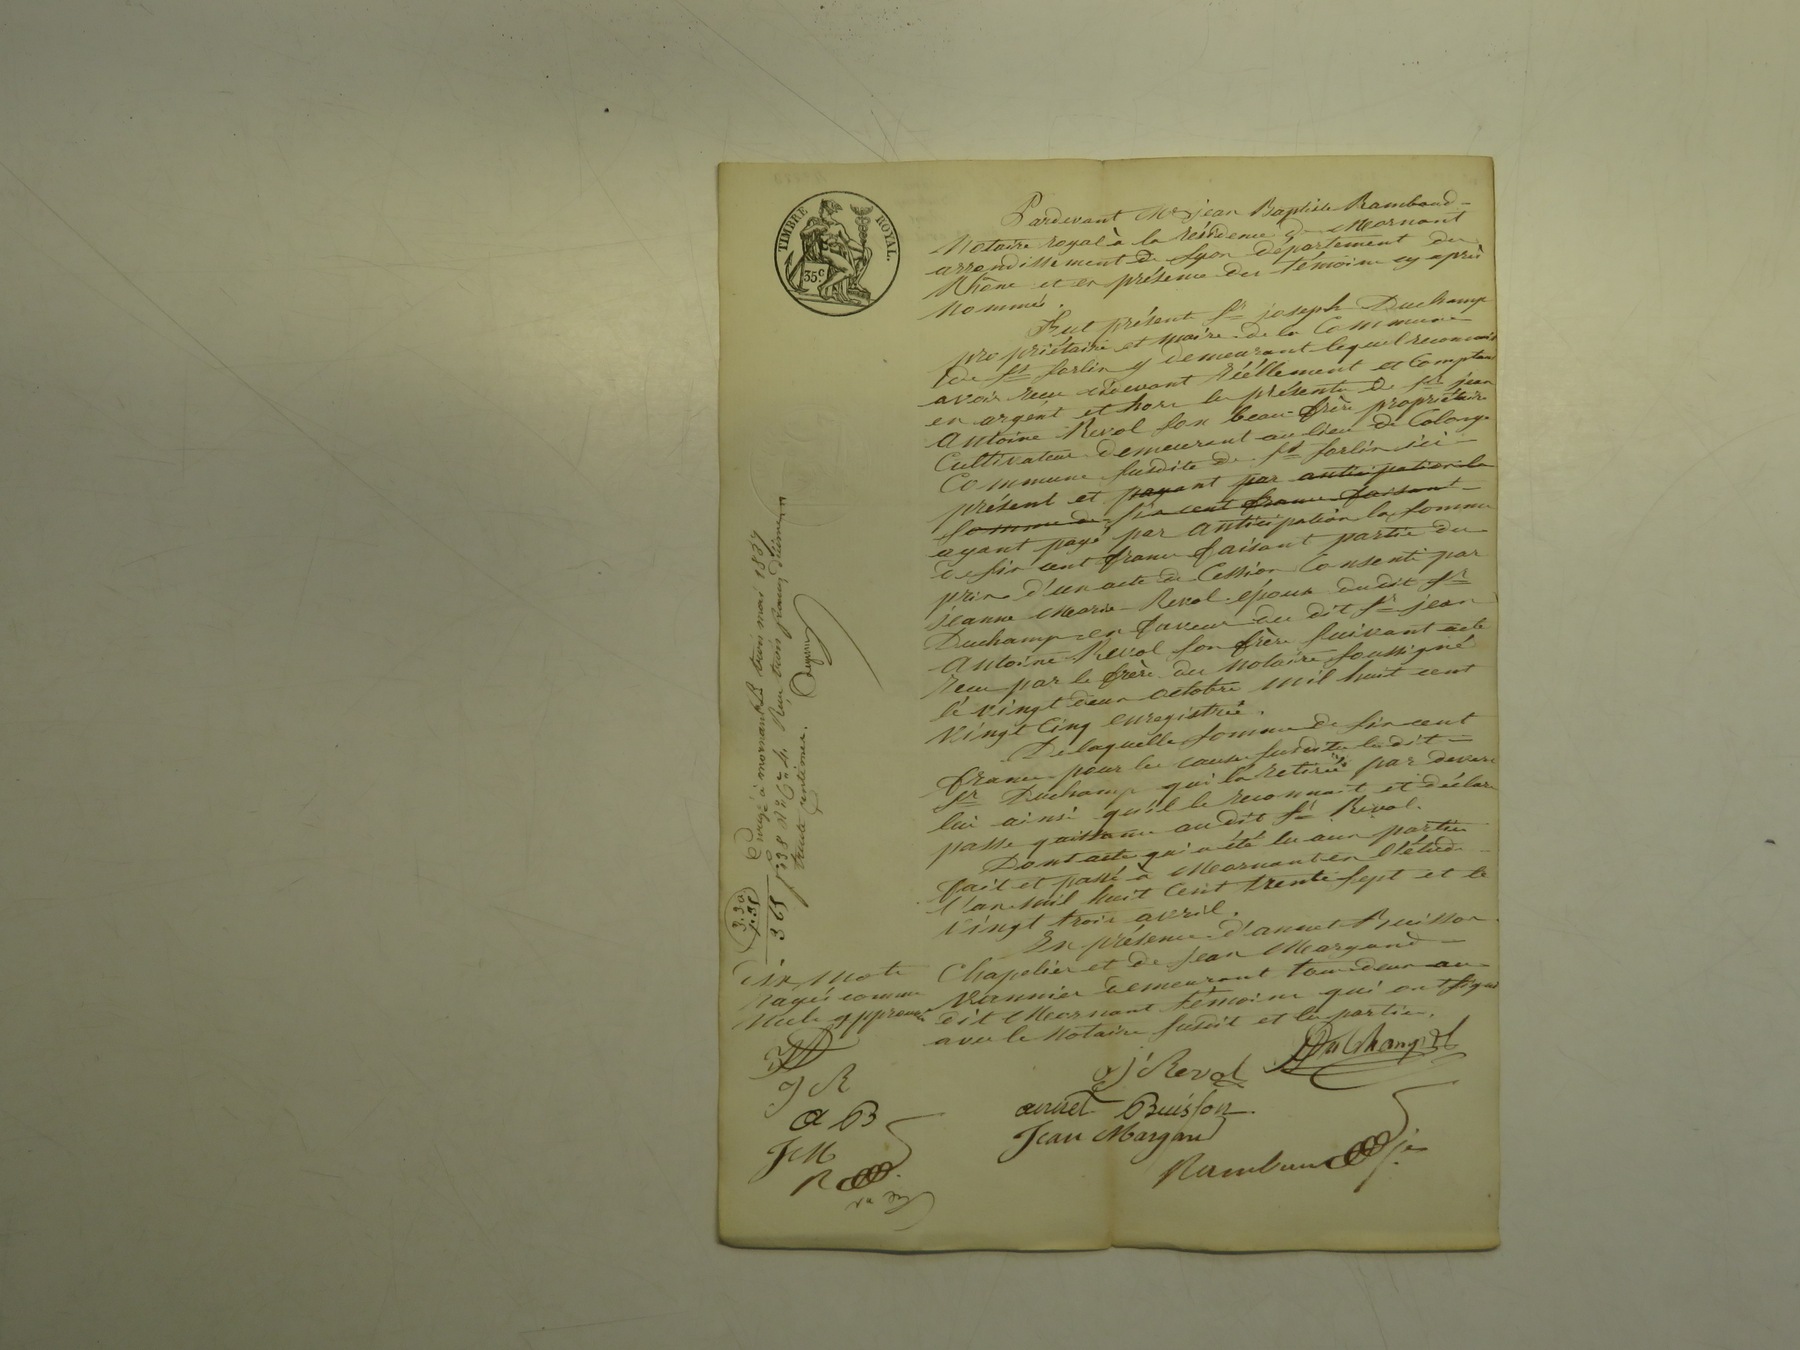 TIMBRE ROYAL.
35c.
Pardevant Me jean Baptiste Rambaud
Notaire royal à la résidence de Mornant
arrondissement de Lyon département du
Rhône et en présence des témoins cy après
Nommés.
Fut présent Sr joseph Duchamp
propriétaire et maire de la Commune
de St Sorlin y demeurant lequel reconnait
avoir reçu cidevant réellement et Comptant
en argent et hors les présentes de Sr jean
Antoine Revol son beau-frère propriétaire
Cultivateur demeurant au lieu de Colonge
Commune susdite de St Sorlin ici
présent et payant par anticipation la
somme de six cent francs faisant
ayant payé par anticipation la somme
de six cent francs faisant partie du
prix d'un acte de Cession Consenti par
jeanne Marie Revol épouse dudit Sr
Duchamp en faveur du dit Sr jean
Antoine Revol son frère suivant acte
reçu par le frère du Notaire soussigné
le vingt deux octobre mil huit cent
vingt Cinq enregistré.
De laquelle somme de six cent
francs pour les causes susdites ledit
Sr Duchamp qui l'a retirée par devers
lui ainsi qu'il le reconnait et déclare
passe quittance audit Sr Revol.
Dont acte qui a été lu aux parties
fait et passé à Mornant en l'étude
l'an mil huit Cent trente sept et le
vingt trois avril.
En présence d'annet Buisson
Chapelier et de jean Margand
Vannier demeurant tous deux au
dit Mornant témoins qui ont signé
avec le Notaire susdit et les parties.
Duchamp
J Revol
annet Buisson
Jean Margand
Rambaud je
Enregé à mornant le trois mai 1837
f° 338 N° Ce 4. Reçu trois francs dixième
trente centimes.
3.30
.35
3 65
Dix mots
rayés comme
nuls approuvés
JD
J R
a B
J M
R